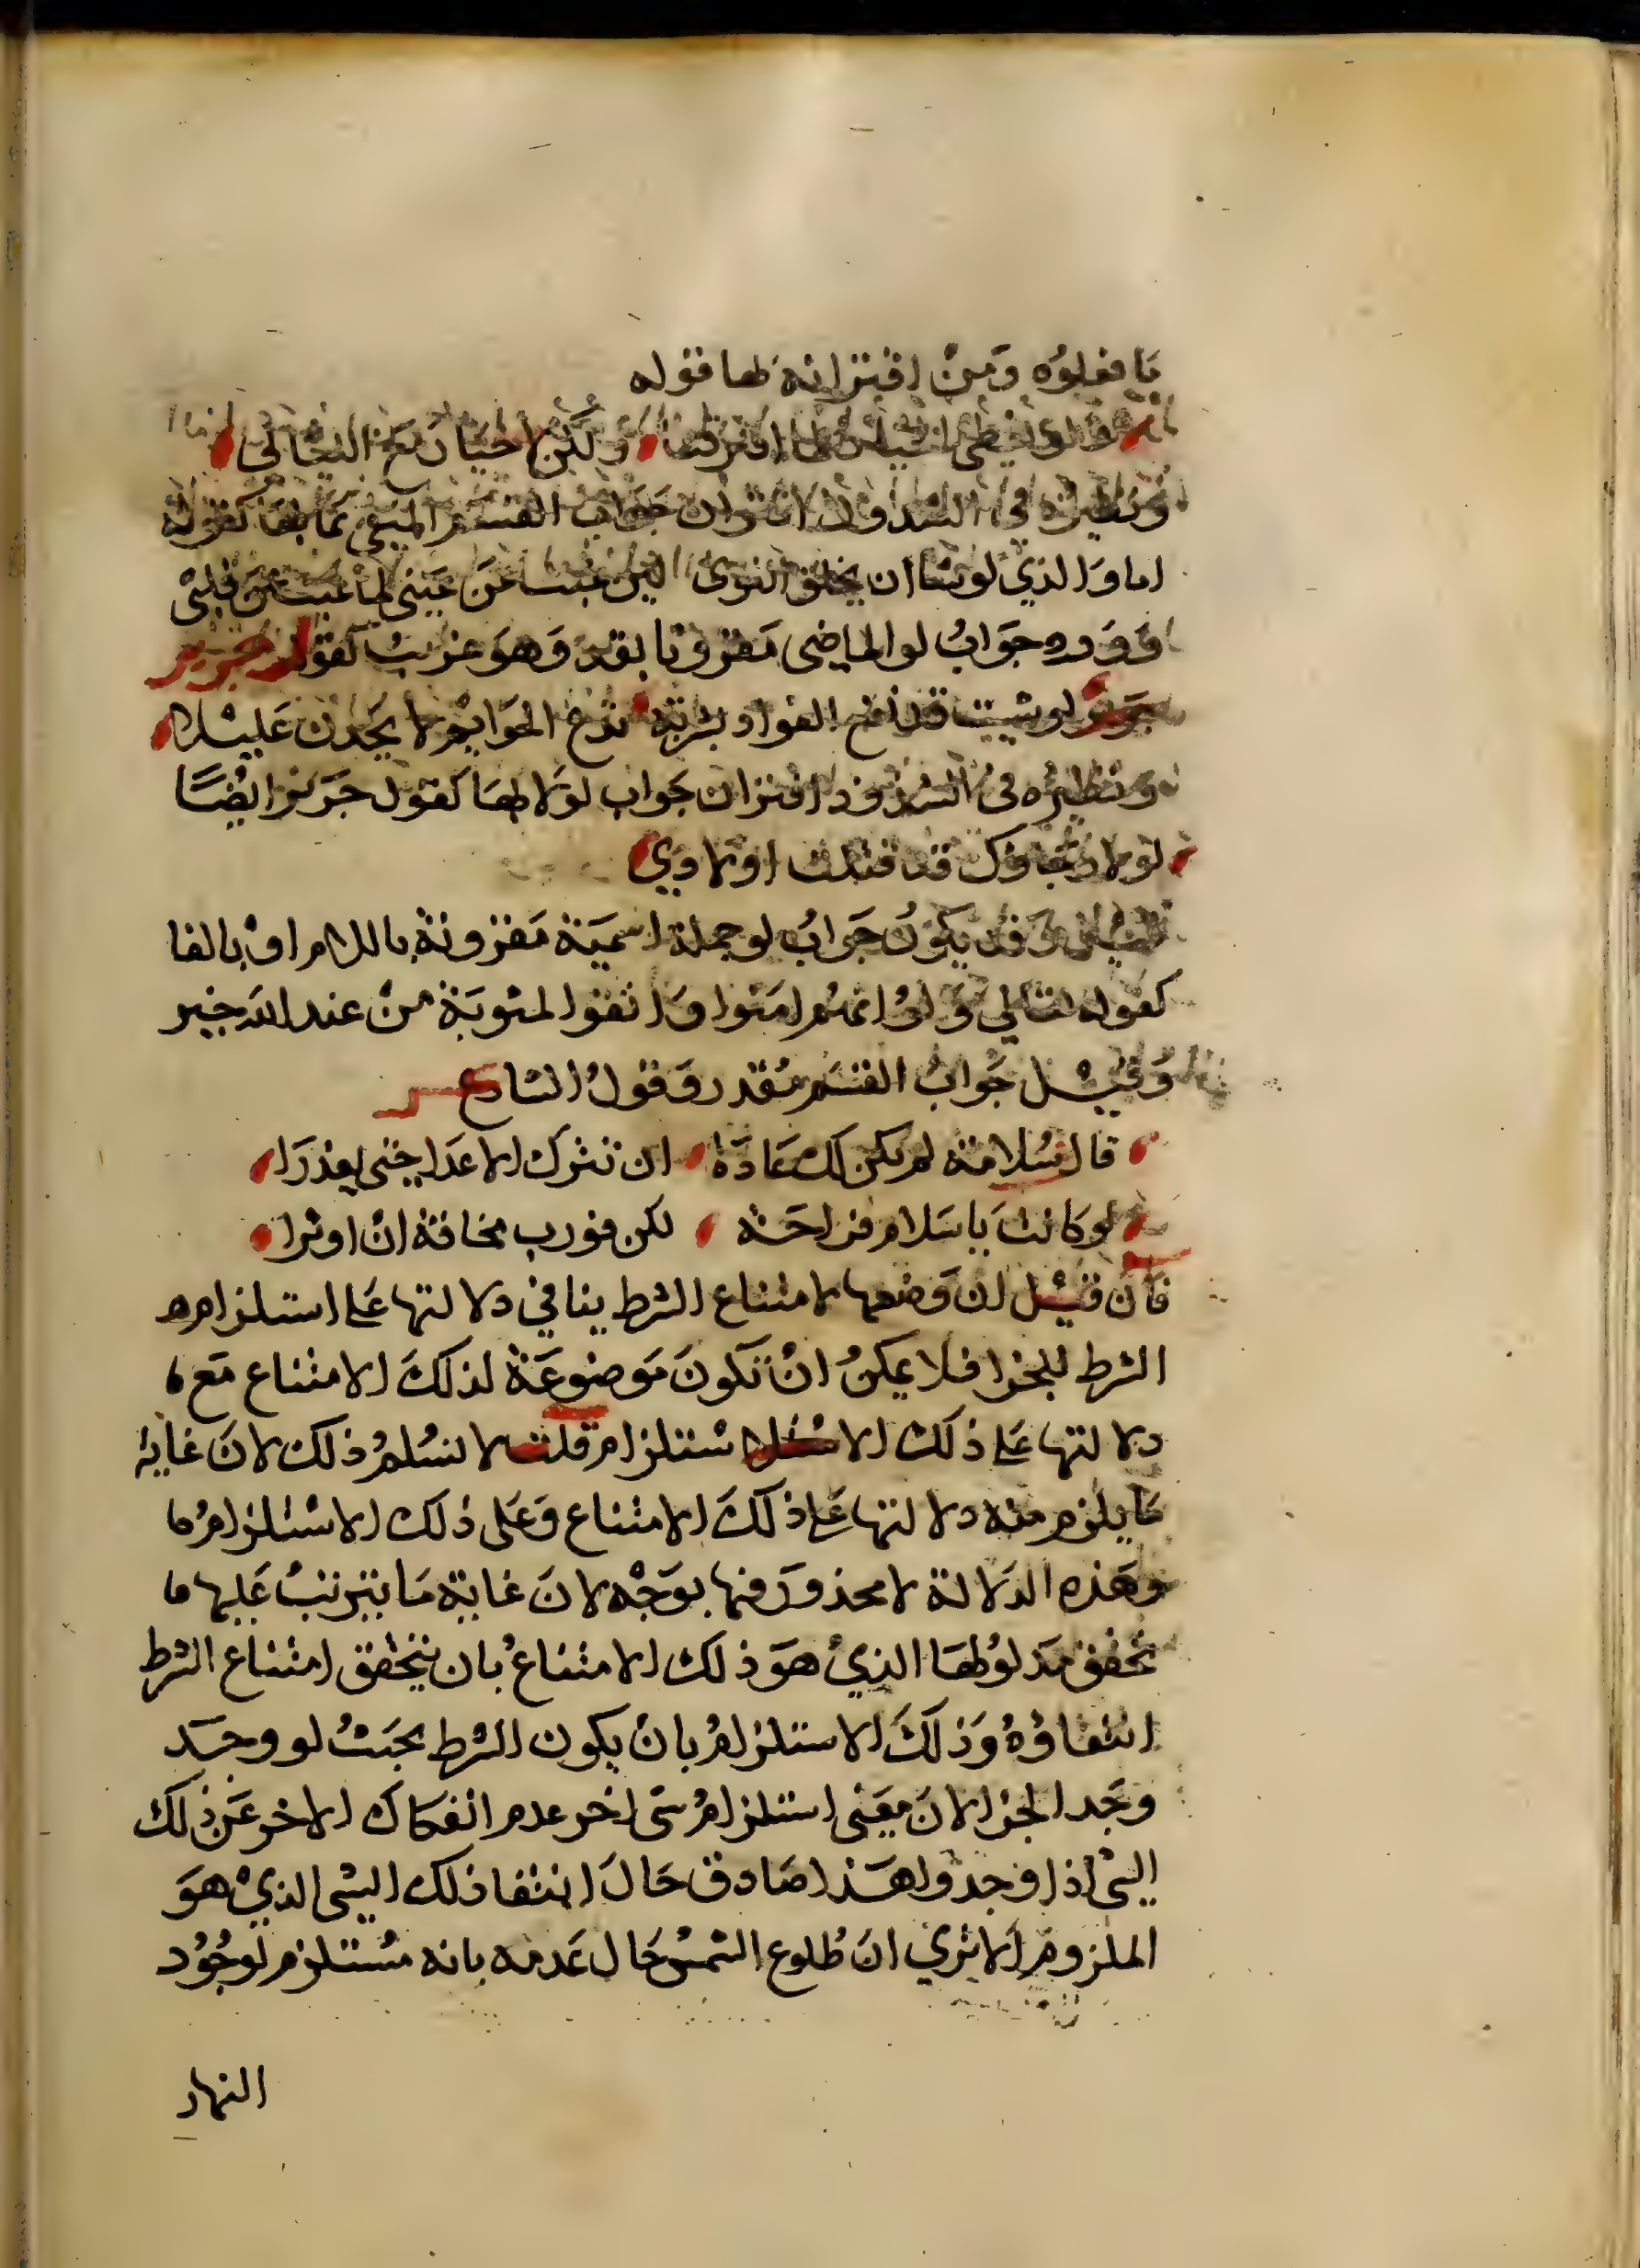 ما فعلوه ومن اقترانه بها قوله
ولو نعطى الخيار لما افترقنا ولكن لا خيار مع الليالي
ونظيره في الشذوذ اقتران جواب القسم المنفي بما بها كقوله
اما والذي لو شا ان يخلق النوى لين غبت عن عيني لما غبت عن قلبي
وورد جواب لو الماضي مقرونا بقد وهو غريب كقول جرير
لو شيت قد نقع الفواد بشربة تدع الحوايم لا يجدن غليلا
ونظيره في الشذوذ اقتران جواب لولا بها كقول جرير ايضا
لولا رجاوك قد قتلت اولادي
قيل وقد يكون جواب لو جملة اسمية مقرونة باللام او بالفا
كقوله تعالى ولو انهم امنوا واتقوا لمثوبة من عند الله خير
وقيل جواب القسم مقدر وقول الشاعر
قال سلامة لم يكن لك عادة ان تترك الاعدا حتى يعذرا
لو كانت يا سلام فراحة لكن فررت مخافة ان اوثرا
فان قيل لن وضعها لامتناع الشرط ينافي دلالتها على استلزام
الشرط للجزا فلا يمكن ان تكون موضوعة لذلك الامتناع مع
دلالتها على ذلك الاستلزام قلت لا نسلم ذلك لان غاية
ما يلزم منه دلالتها على ذلك الامتناع وعلى ذلك الاستلزام
وهذه الدلالة لا محذور فيها بوجه لان غاية ما يترتب عليها
تحقق مدلولها الذي هو ذلك الامتناع بان يتحقق امتناع الشرط
انتفاؤه وذلك الاستلزام بان يكون الشرط بحيث لو وجد
وجد الجزا لان معنى استلزام شي اخر عدم انفكاك الاخر عن ذلك
الشي اذا وجد وهذا صادق حال انتفا ذلك الشي الذي هو
الملزوم الا تري ان طلوع الشمس حال عدمه بانه مستلزم لوجود
النهار